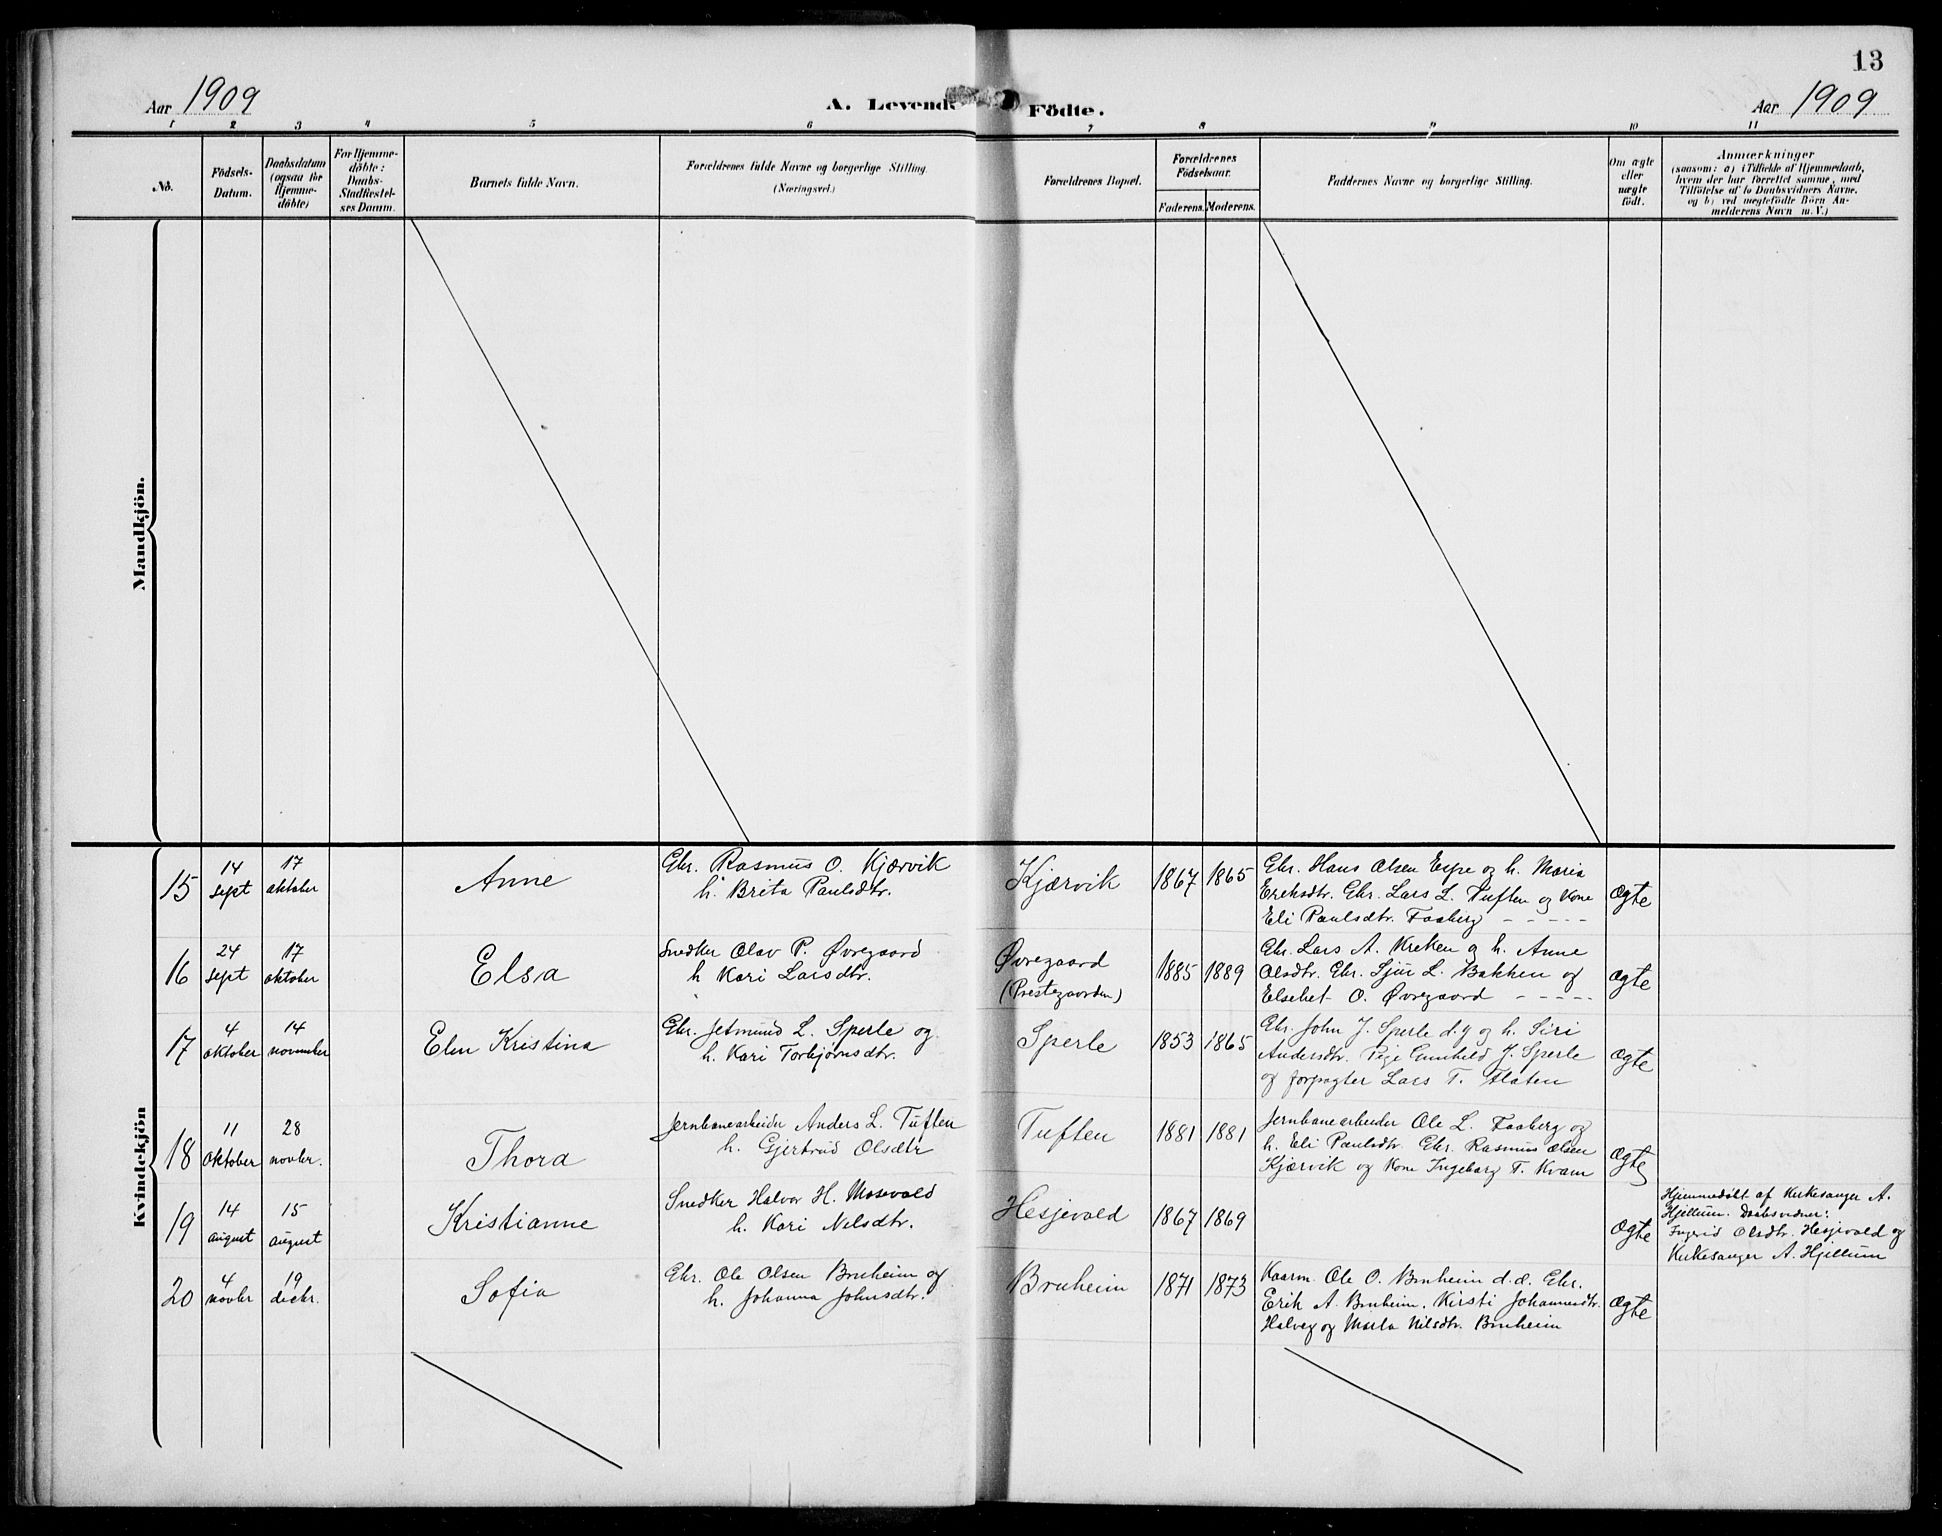 13
Aar 1909
A. Levende Födte.
Aar 1909
1 2 3 4 5 6 7 8 9 10 11
No.
Födsels-Datum.
Daabsdatum (ogsaa for Hjemme-döbte)
For Hjemme-döbte: Daabs-Stadfæstel-ses Datum.
Barnets fulde Navn.
Forældrenes fulde Navne og borgerlige Stilling
(Næringsvei.)
Forældrenes Bopæl.
Forældrenes Födselsaar.
Faderens. Moderens.
Faddernes Navne og borgerlige Stilling.
Om ægte eller uægte födt.
Anmærkninger
(saasom: a) i Tilfælde af Hjemmedaab,
hvem der har forrettet samme, med
Tilföielse af to Daabsvidners Navne,
og b) ved uægtefödte Börn An-
melderens Navn m. V.)
Mandkjön.
Kvindekjön
15
14 sept
17 oktober
Anne
Gbr. Rasmus O. Kjærvik
h. Brita Paulsdtr.
Kjærvik
1867 1865
Gbr. Hans Olsen Espe og h. Maria
Eriksdtr. Gbr. Lars L. Tuften og Kone
Eli Paulsdtr. Faaberg - - - - -
Ægte
16
24 sept
17 oktober
Elsa
Snedker Olav P. Øvregaard
h Kari Larsdtr.
Øvregaard
(Prestegaarden)
1885 1889
Gbr. Lars A. Kreken og h. Anne
Olsdtr. Gbr. Sjur L. Bakken og
Elsebet O. Øvregaard - - - - -
Ægte
17
4 oktober
14 november
Elen Kristina
Gbr. Jetmund L. Sperle og
h. Kari Torbjørnsdtr.
Sperle
1853 1865
Gbr. John J. Sperle d.y og h. Siri
Andersdtr. Pige Gunhild J. Sperle
og forpagter Lars T. Flaten
Ægte
18
11 oktober
28 novbr.
Thora
Jernbanearbeider Anders L. Tuften
h. Gjertrud Olsdtr
Tuften
1881 1881
Jernbanearbeider Ole L. Faaberg og
h. Eli Paulsdtr. Gbr. Rasmus Olsen
Kjærvik og Kone Ingeborg T. Kvam
Ægte
19
14 august
15 august
Kristianne
Snedker Halvor H. Mosevold
h. Kari Nilsdtr.
Hesjevold
1867 1869
Ægte
Hjemmedøbt af Kirkesanger A.
Hjellum. Daabsvidner:
Ingrid Olsdtr. Hesjevold og
Kirkesanger A. Hjellum
20
4 novbr
19 decbr.
Sofia
Gbr. Ole Olsen Bruheim og
h. Johanna Johnsdtr.
Bruheim
1871 1873
Kaarm. Ole O. Bruheim d.æ. Gbr.
Erik A. Bruheim. Kirsti Johannesdtr.
Halveg og Marta Nilsdtr. Bruheim
Ægte